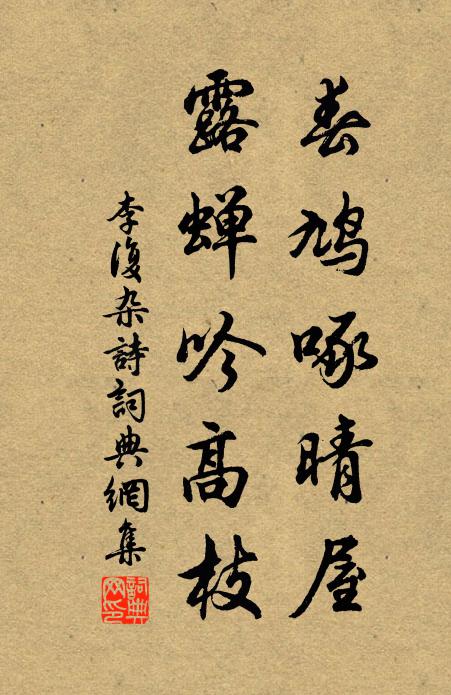 春鳩啄晴屋
露蝉吟高枝
李復杂詩詞典網集
詞典网印